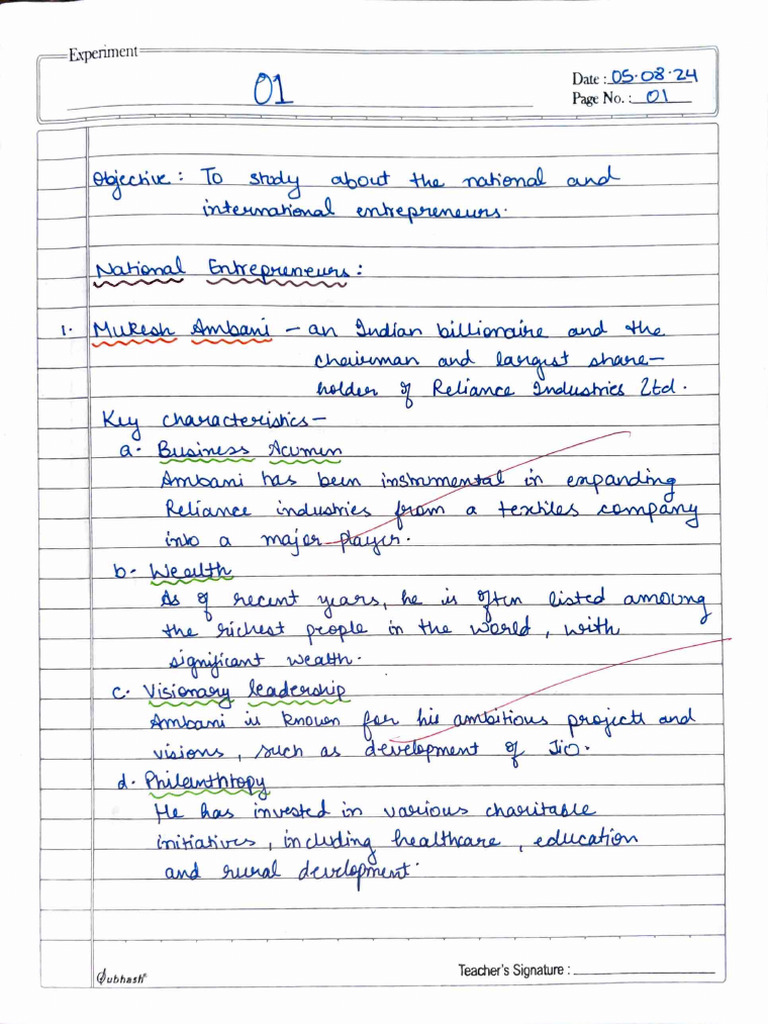 Experiment
01
Date : 05.08.24
Page No. : 01
Objective : To study about the national and
international entrepreneurs.
National Entrepreneurs :
1. Mukesh Ambani – an Indian billionaire and the
chairman and largest share-
holder of Reliance Industries Ltd.
Key characteristics –
a. Business Acumen
Ambani has been instrumental in expanding
Reliance industries from a textiles company
into a major player.
b. Wealth
As of recent years, he is often listed amoung
the richest people in the world, with
significant wealth.
c. Visionary leadership
Ambani is known for his ambitious projects and
visions, such as development of Jio.
d. Philanthropy
He has invested in various charitable
initiatives, including healthcare, education
and rural development.
Subhash
Teacher's Signature :